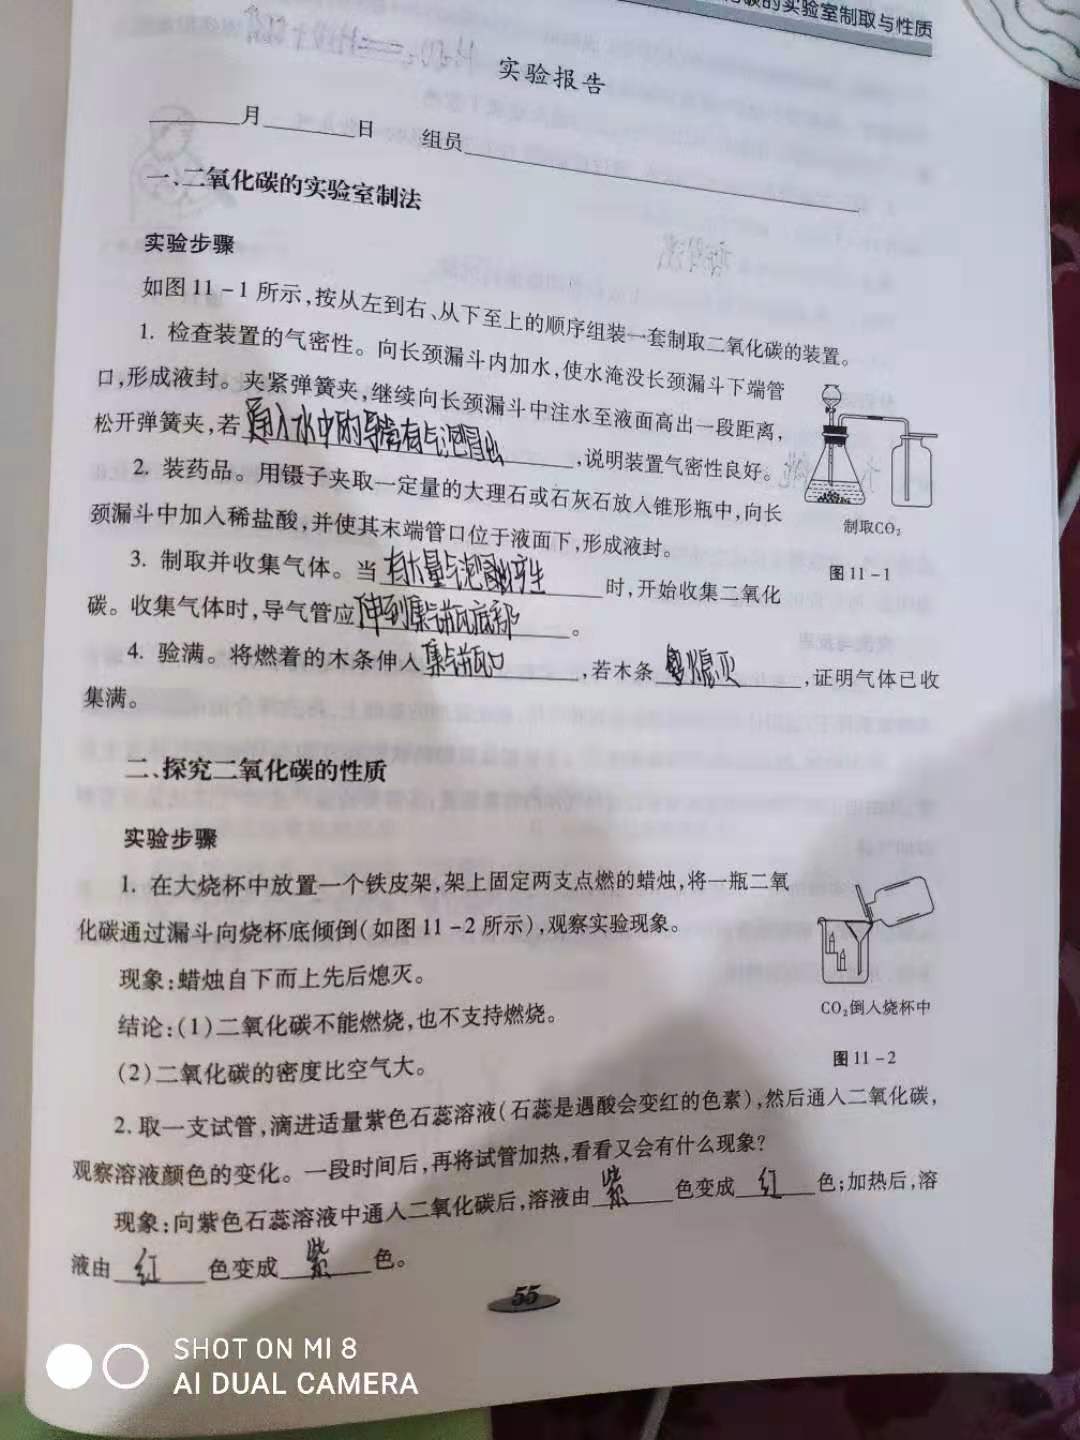 化碳的实验室制取与性质
实验报告
月 日 组员
一、二氧化碳的实验室制法
实验步骤
如图11-1所示,按从左到右、从下至上的顺序组装一套制取二氧化碳的装置。
1. 检查装置的气密性。向长颈漏斗内加水,使水淹没长颈漏斗下端管
口,形成液封。夹紧弹簧夹,继续向长颈漏斗中注水至液面高出一段距离,
松开弹簧夹,若通入水中的导管有气泡冒出,说明装置气密性良好。
2. 装药品。用镊子夹取一定量的大理石或石灰石放入锥形瓶中,向长
颈漏斗中加入稀盐酸,并使其末端管口位于液面下,形成液封。
制取CO₂
图11-1
3. 制取并收集气体。当有大量气泡产生时,开始收集二氧化
碳。收集气体时,导气管应伸到集气瓶底部。
4. 验满。将燃着的木条伸入集气瓶口,若木条熄灭,证明气体已收
集满。
二、探究二氧化碳的性质
实验步骤
1. 在大烧杯中放置一个铁皮架,架上固定两支点燃的蜡烛,将一瓶二氧
化碳通过漏斗向烧杯底倾倒(如图11-2所示),观察实验现象。
现象:蜡烛自下而上先后熄灭。
结论:(1)二氧化碳不能燃烧,也不支持燃烧。
(2)二氧化碳的密度比空气大。
CO₂倒入烧杯中
图11-2
2. 取一支试管,滴进适量紫色石蕊溶液(石蕊是遇酸会变红的色素),然后通入二氧化碳,
观察溶液颜色的变化。一段时间后,再将试管加热,看看又会有什么现象?
现象:向紫色石蕊溶液中通入二氧化碳后,溶液由紫色变成红色;加热后,溶
液由红色变成紫色。
55
SHOT ON MI 8
AI DUAL CAMERA